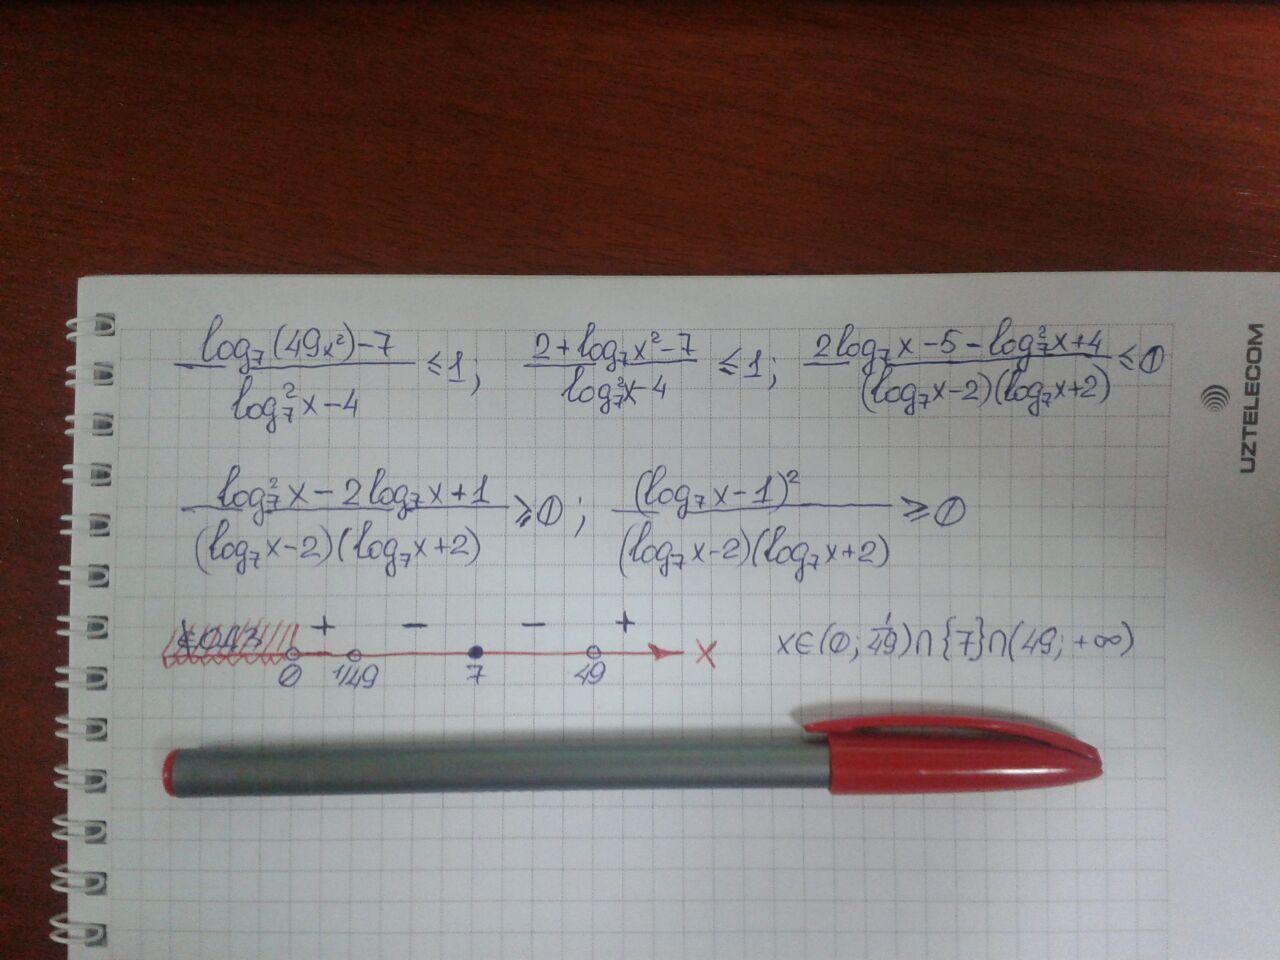 log₇(49x²)−7 / log₇²x−4 ≤ 1; 2+log₇x²−7 / log₇²x−4 ≤ 1; 2log₇x−5−log₇²x+4 / (log₇x−2)(log₇x+2) ≤ 0
log₇²x−2log₇x+1 / (log₇x−2)(log₇x+2) ≥ 0; (log₇x−1)² / (log₇x−2)(log₇x+2) ≥ 0
+ − − +
0 1/49 7 49 x
x∈(0; 1/49)∩{7}∩(49; +∞)
UZTELECOM